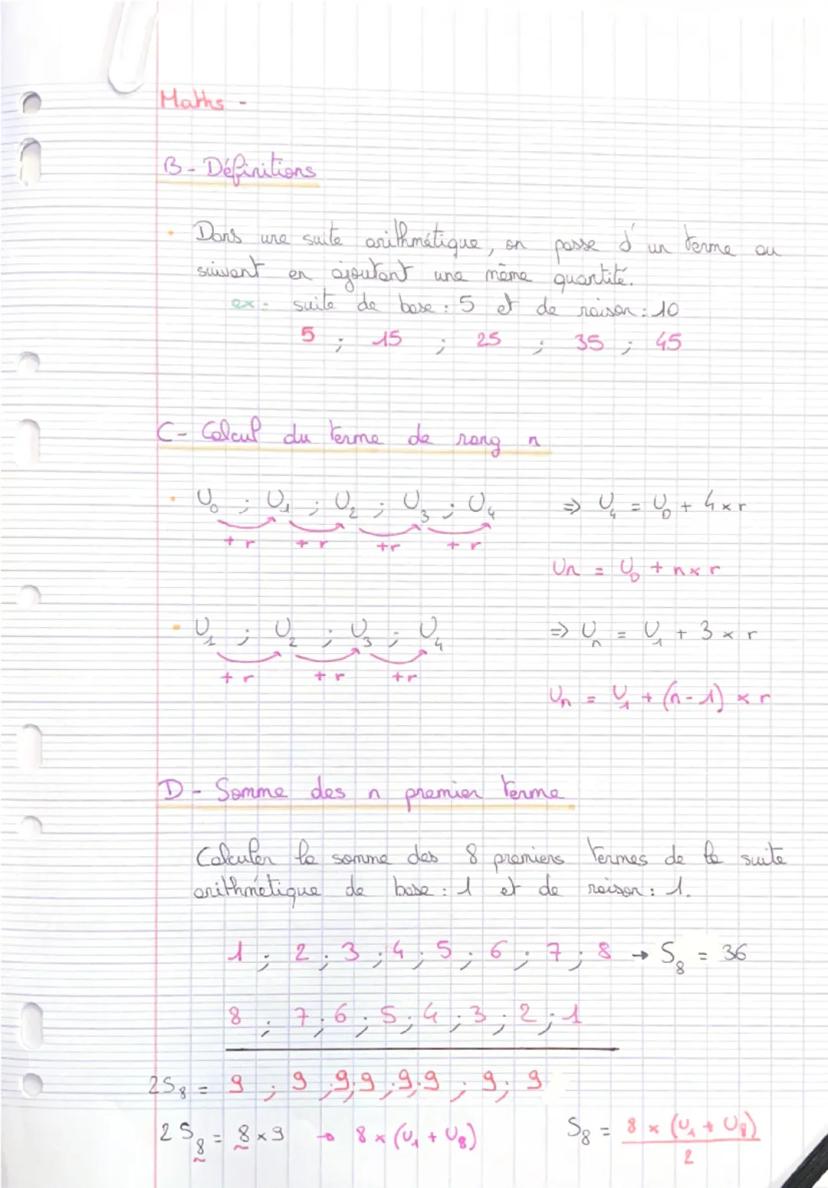 Maths -
B - Définitions
• Dans une suite arithmétique, on passe d'un terme au
suivant en ajoutant une même quantité.
ex : suite de base : 5 et de raison : 10
5 ; 15 ; 25 ; 35 ; 45
C - Calcul du terme de rang n
• U₀ ; U₁ ; U₂ ; U₃ ; U₄ ⇒ U₄ = U₀ + 4 × r
+ r + r + r + r
Un = U₀ + n × r
• U₁ ; U₂ ; U₃ ; U₄ ⇒ Uₙ = U₁ + 3 × r
+ r + r + r
Uₙ = U₁ + (n - 1) × r
D - Somme des n premier terme
Calculer la somme des 8 premiers termes de la suite
arithmétique de base : 1 et de raison : 1.
1 ; 2 ; 3 ; 4 ; 5 ; 6 ; 7 ; 8 → S₈ = 36
8 ; 7 ; 6 ; 5 ; 4 ; 3 ; 2 ; 1
2S₈ = 9 ; 9 ; 9 ; 9 ; 9 ; 9 ; 9 ; 9
2S₈ = 8 × 9 → 8 × (U₁ + U₈) S₈ = 8 × (U₁ + U₈)
2